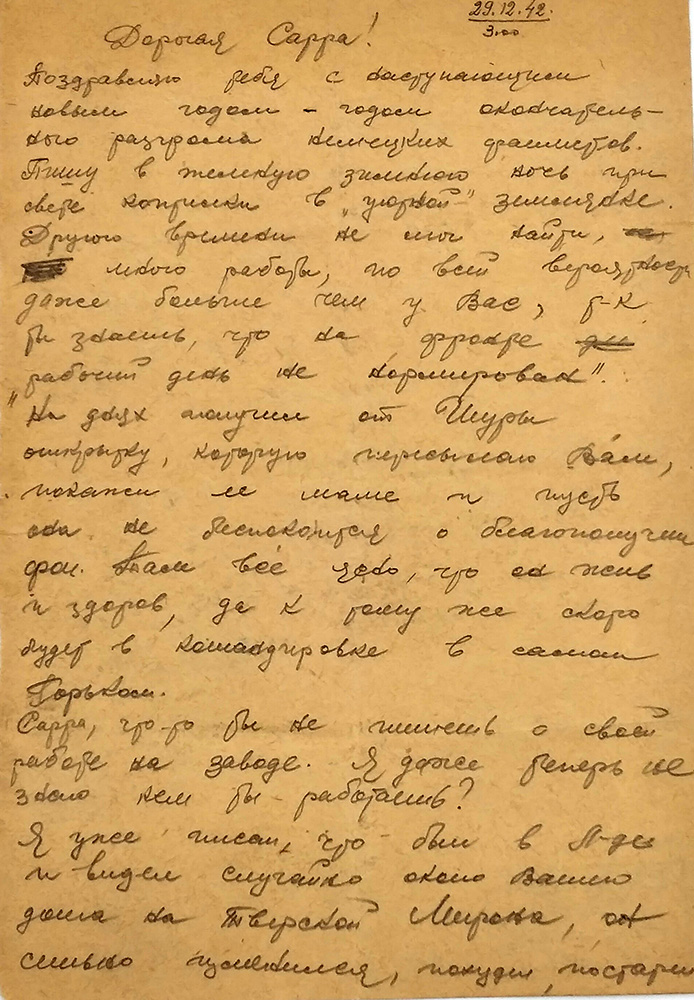 29.12.42.
3.00
Дорогая Сарра!
Поздравляю тебя с наступающим
новым годом – годом окончатель-
ного разгрома немецких фашистов.
Пишу в темную зимнюю ночь при
свете коптилки в „уютной" землянке.
Другого времени не мог найти,
много работы, по всей вероятности
даже больше чем у Вас, т-к
ты знаешь, что на фронте
"рабочий день не нормирован".
На днях получил от Шуры
открытку, которую пересылаю Вам,
покажи ее маме и пусть
она не беспокоится о благополучии
Там всё ясно, что он жив
и здоров, да к тому же скоро
будет в командировке в самом
Горьком.
Сарра, что-то ты не пишешь о своей
работе на заводе. Я даже теперь не
знаю кем ты работаешь?
Я уже писал, что был в Л-де
и видел случайно около Вашего
дома на Тверской Мирона, он
сильно изменился, похудел, постарел